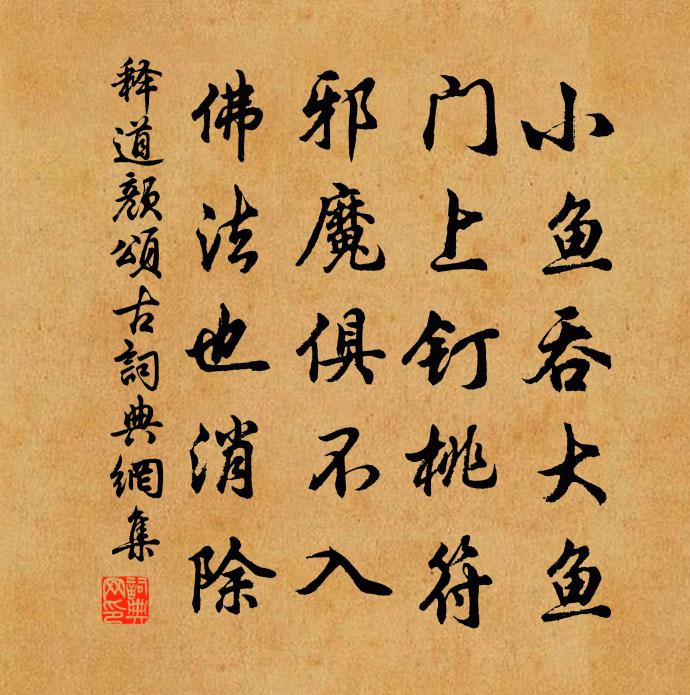 小鱼吞大鱼
门上钉桃符
邪魔俱不入
佛法也消除
释道颜颂古词典網集
詞典网印